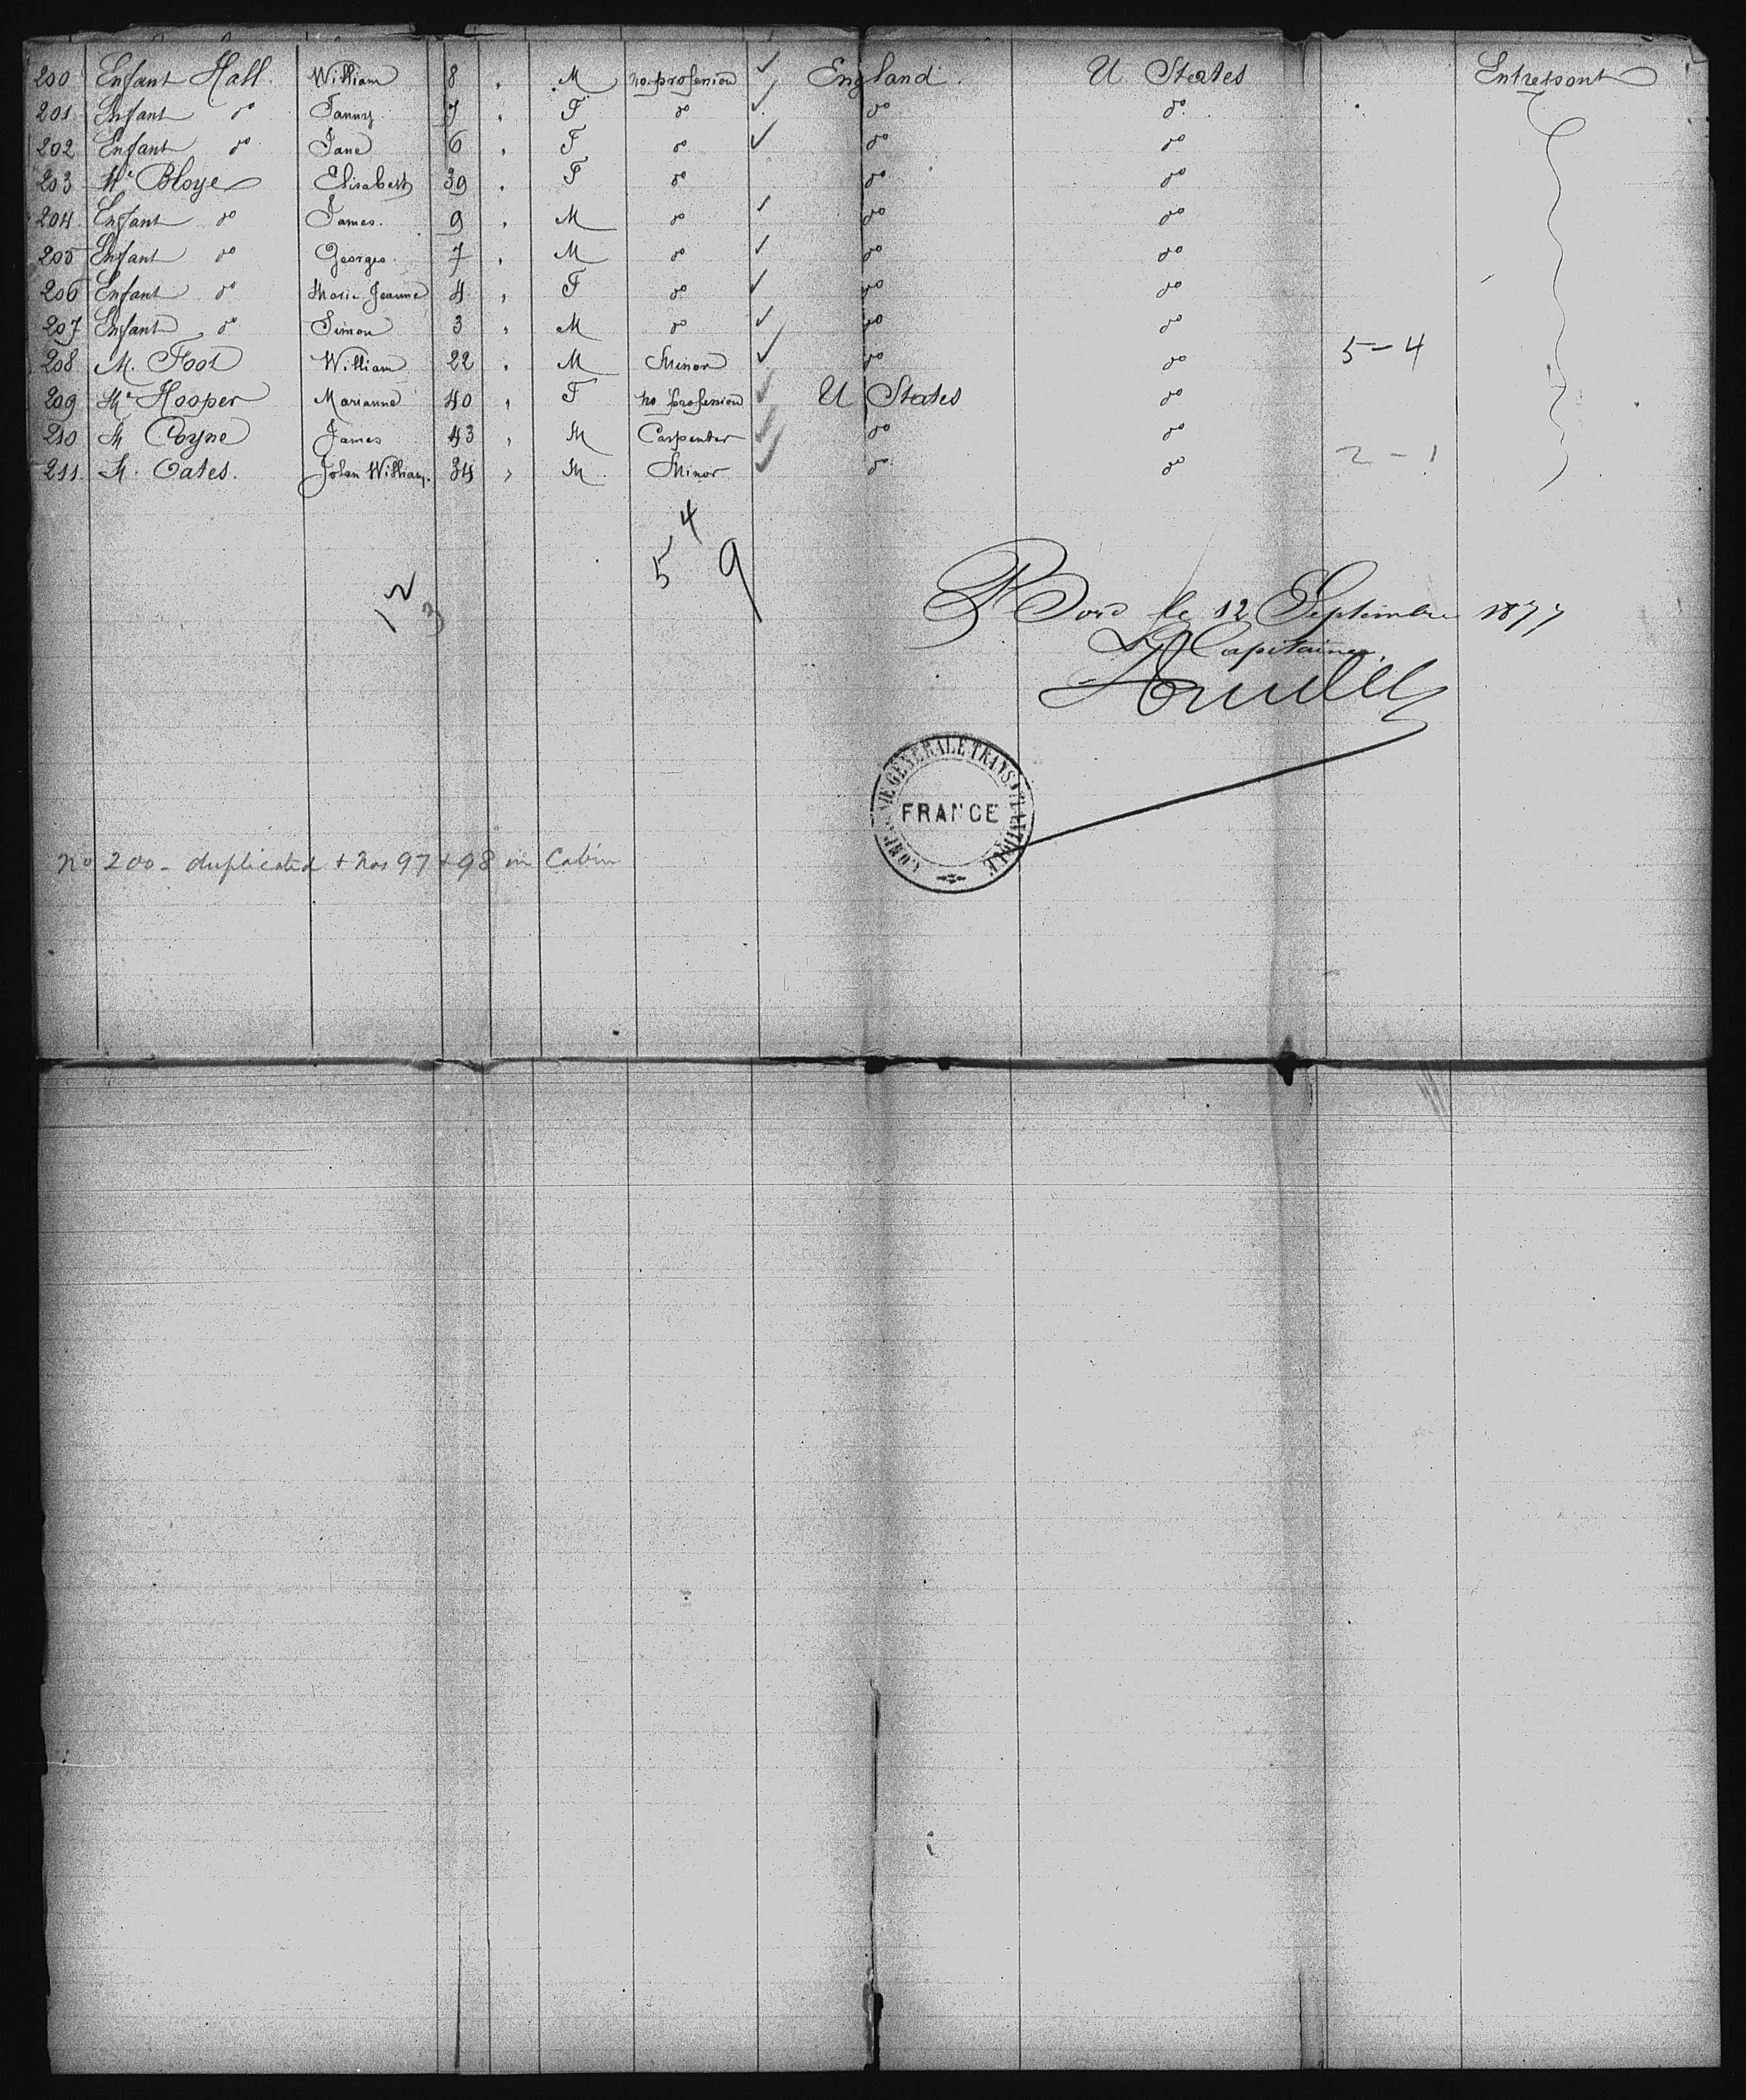 200 Enfant Hall. William 8 " M no profession ✓ England. U States Entrepont
201 Enfant do Fanny 7 " F do ✓ do do
202 Enfant do Jane 6 " F do ✓ do do
203 Me Bloye Elisabeth 39 " F do do do
204 Enfant do James. 9 " M do ✓ do do
205 Enfant do Georges 7 " M do ✓ do do
206 Enfant do Marie Jeanne 4 " F do ✓ do do
207 Enfant do Simon 3 " M do ✓ do do
208 M. Foot William 22 " M Minor ✓ do do 5-4
209 Me Hooper Marianne 40 " F no profession ✓ U States do
210 M Coyne James 43 " M Carpenter ✓ do do
211. M. Oates. John William. 34 " M. Minor ✓ do do 2-1
4
5 9
12
3
A Bord le 12 Septembre 1877
Le Capitaine,
COMPAGNIE GÉNÉRALE TRANSATLANTIQUE
FRANCE
No 200 - duplicated + Nos 97 + 98 in Cabin